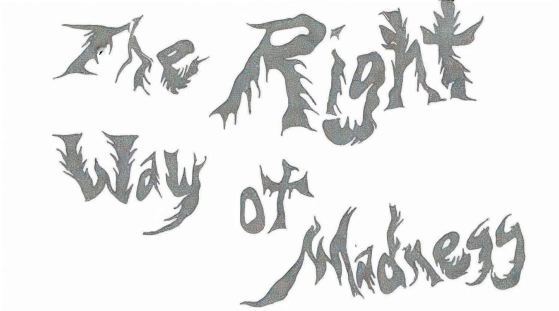 The Right
Way of
Madness